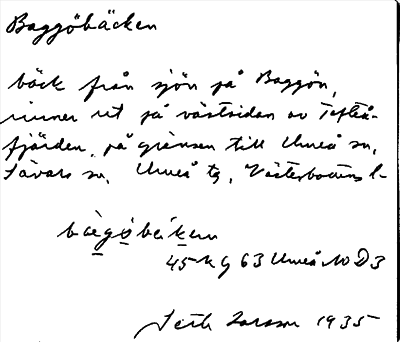 Baggöbäcken
bäck från sjön på Baggön,
rinner ut på västsidan av Tefteå-
fjärden, på gränsen till Umeå sn,
Sävars sn, Umeå tg, Västerbottens l-
45 kg 63 Umeå NO D3
Seth Larsson 1935